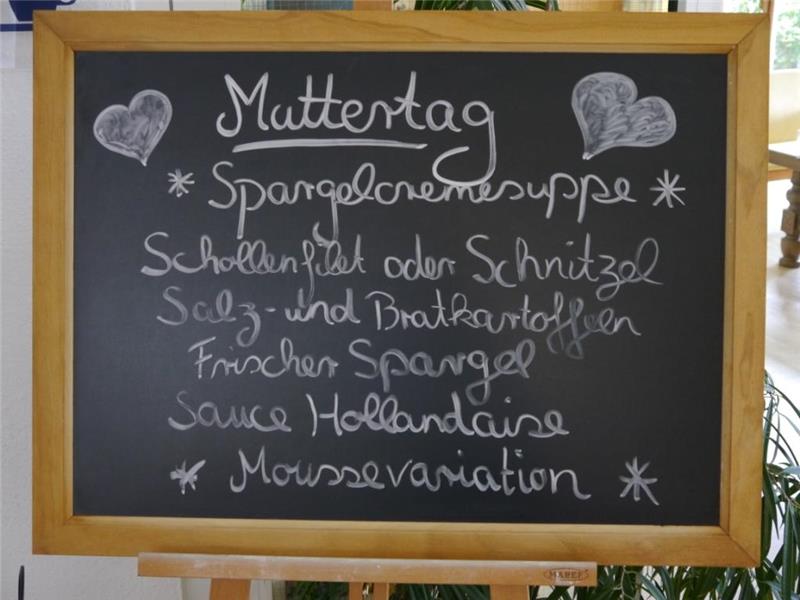 Muttertag
* Spargelcremesuppe *
Schollenfilet oder Schnitzel
Salz- und Bratkartoffeln
Frischer Spargel
Sauce Hollandaise
* Moussevariation *
MABEF